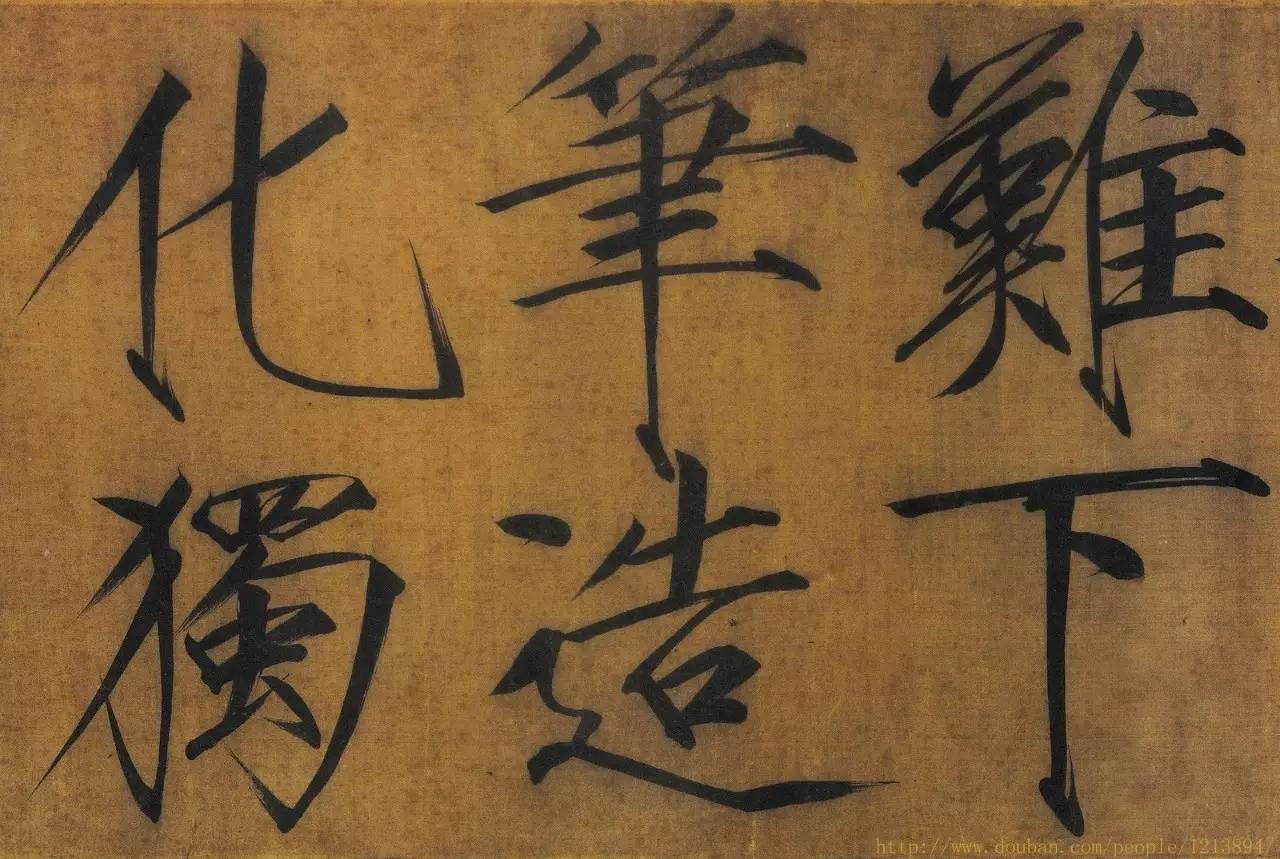 難下
筆造
化獨
http://www.douban.com/people/1213894/